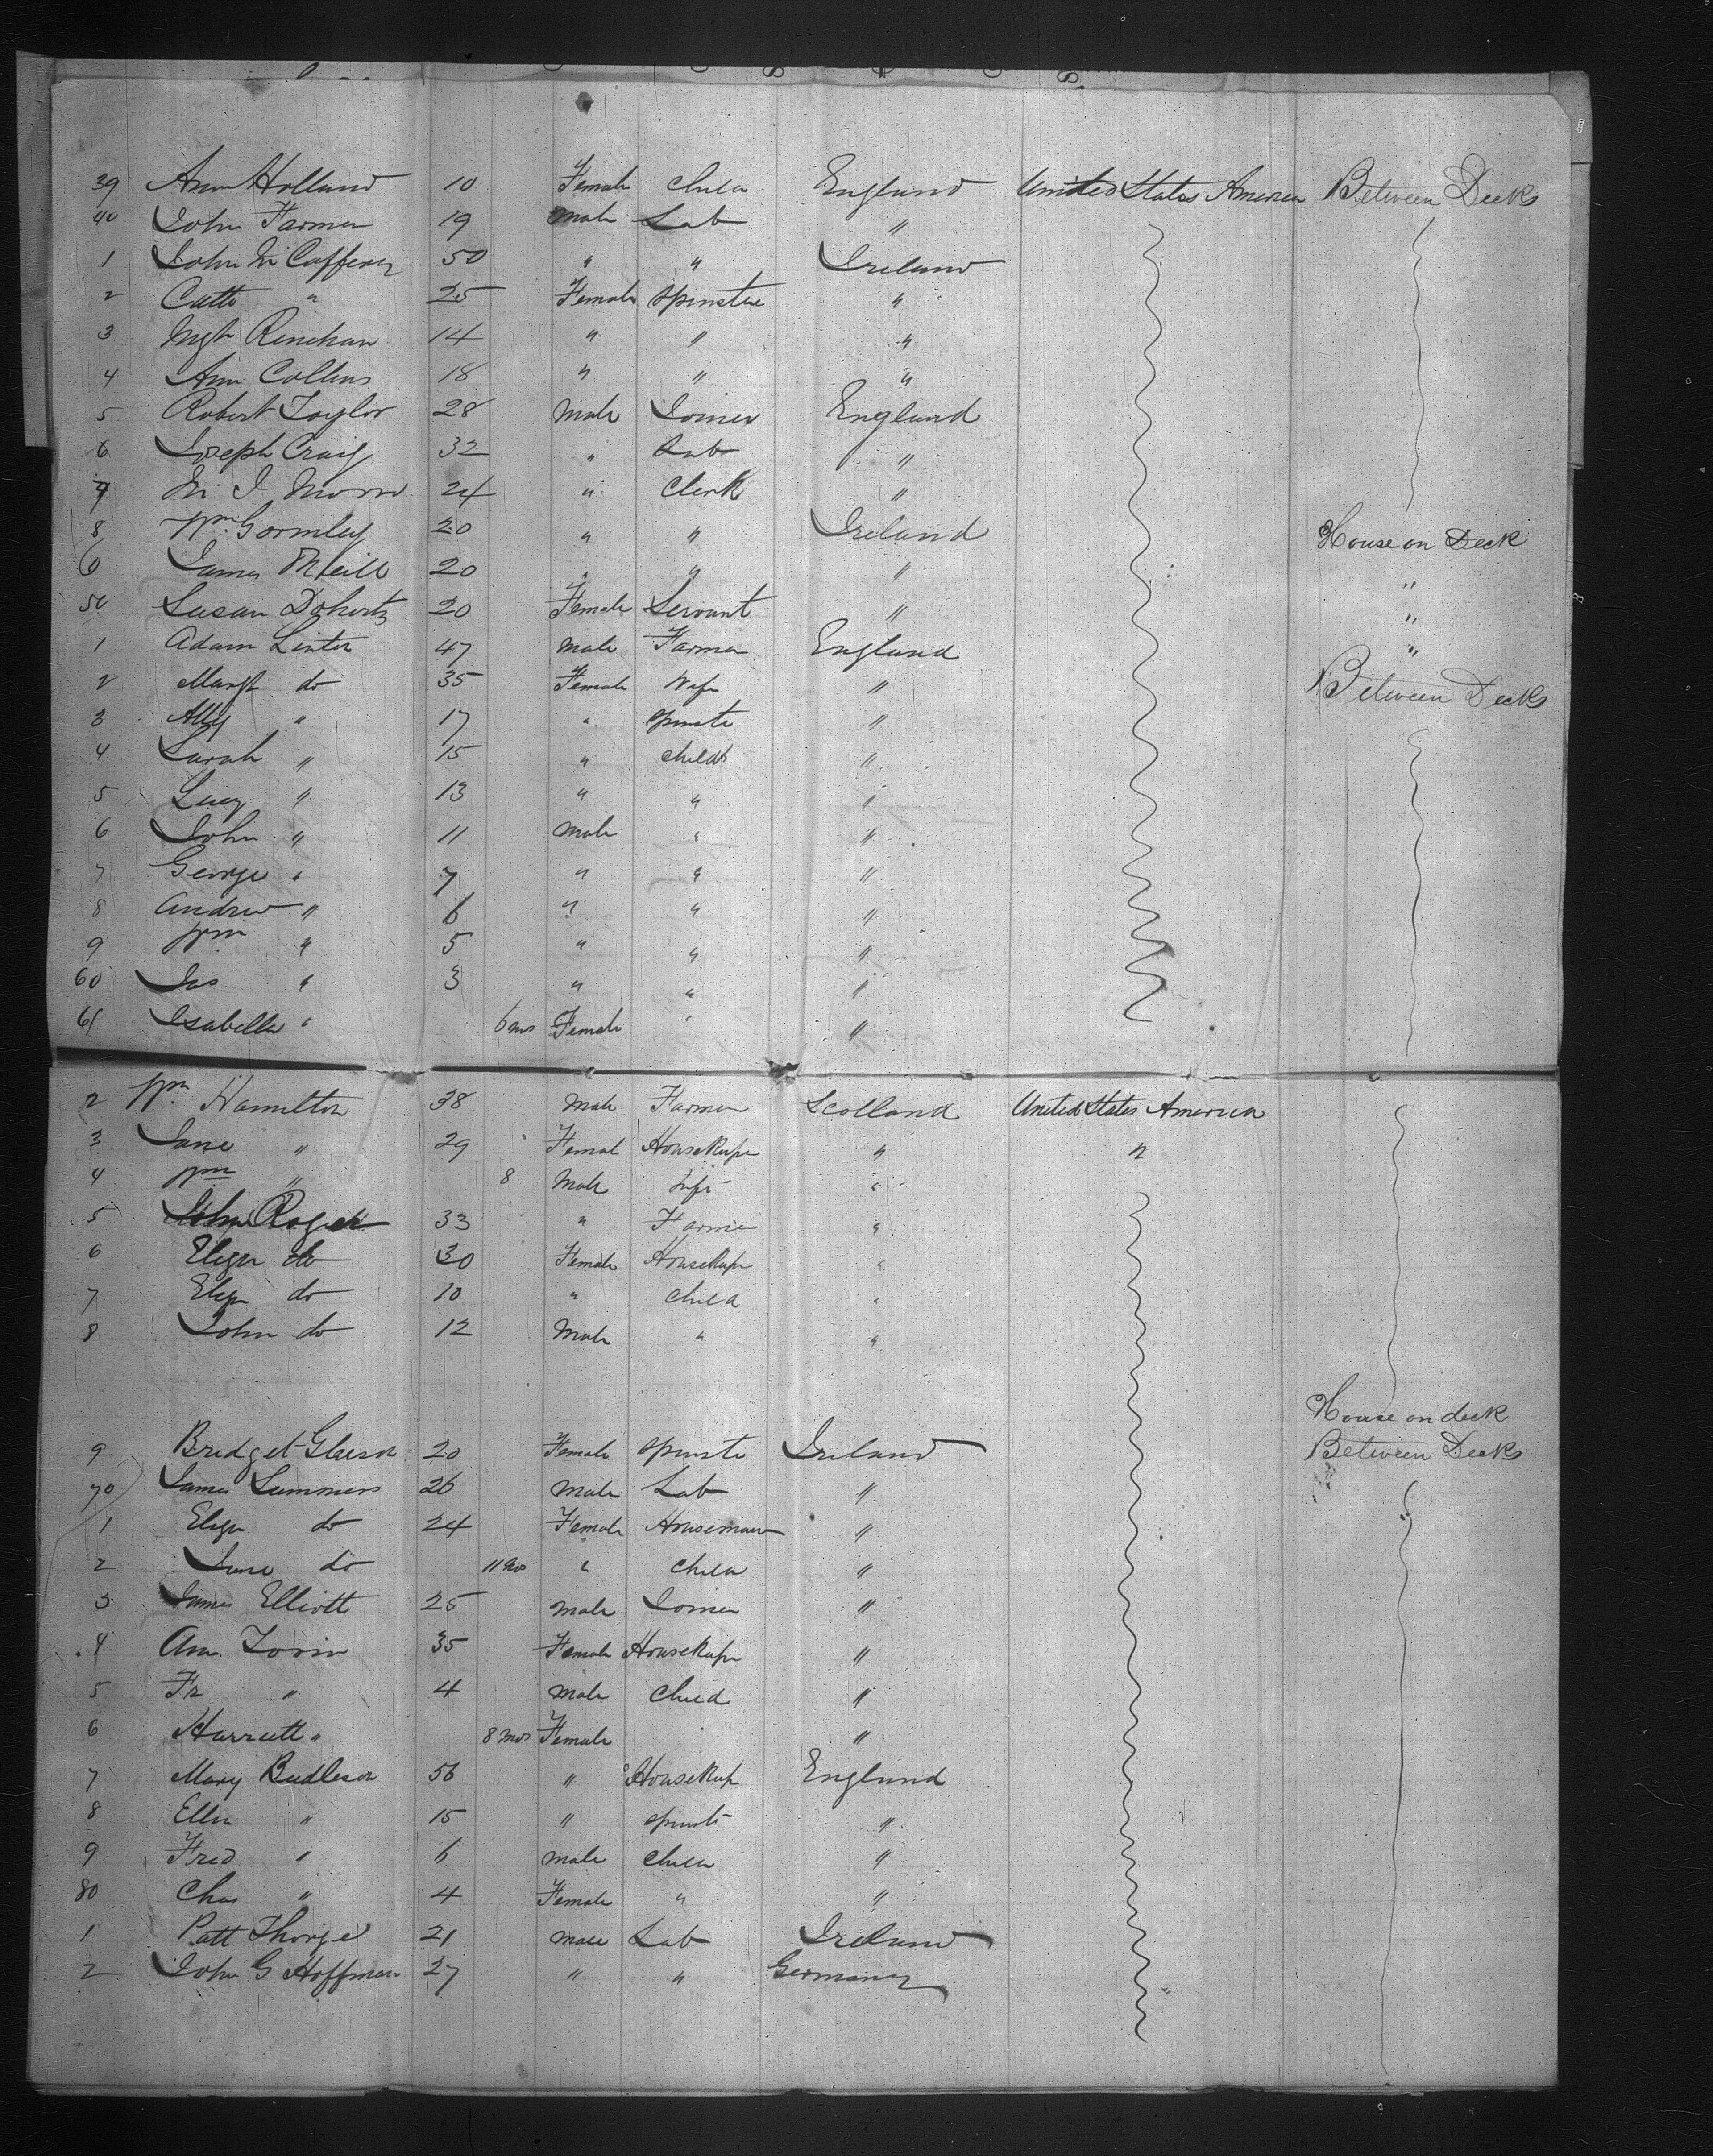 39 Ann Holland 10 Female Child England United States America Between Decks
40 John Farmer 19 Male Lab "
1 John McCaffery 50 " " Ireland
2 Cath " 25 Female Spinster "
3 Mgt Renehan 14 " " "
4 Ann Collins 18 " " "
5 Robert Taylor 28 Male Joiner England
6 Joseph Craig 32 " Lab "
7 24 " Clerk "
8 Wm Gormley 20 " " Ireland House on Deck
James 20 " " " "
50 Susan Doherty 20 Female Servant " "
1 Adam Linter 47 Male Farmer England "
2 Margt do 35 Female Wife " Between Decks
3 Ally " 17 " Spinste "
4 Sarah " 15 " Child "
5 Lucy " 13 " " "
6 John " 11 Male " "
7 George " 7 " " "
8 Andrew " 6 " " "
9 Wm " 5 " " "
60 Jas " 3 " " "
61 Isabella " 6 ms Female " "
2 Wm Hamilton 38 Male Farmer Scotland United States America
3 Jane " 29 Female Housekeeper " "
4 Wm " 8 Male Inft "
5 John 33 " Farmer "
6 Eliza do 30 Female Housekeeper "
7 Eliza do 10 " Child "
8 John do 12 Male " "
House on deck
9 Bridget Gleeson 20 Female Spinste Ireland Between Decks
70 James Summers 26 Male Lab "
1 Eliza do 24 Female "
2 Jane do 11 mos " Child "
3 James Elliott 25 Male Joiner "
4 Ann 35 Female Housekeeper "
5 Fr " 4 Male Child "
6 Harriett " 8 mos Female "
7 Mary 56 " Housekeep England
8 Ellen " 15 " Spinste "
9 Fred " 6 Male Child "
80 Chas " 4 Female " "
1 Patt Thorpe 21 Male Lab Ireland
2 John G Hoffman 27 " " Germany